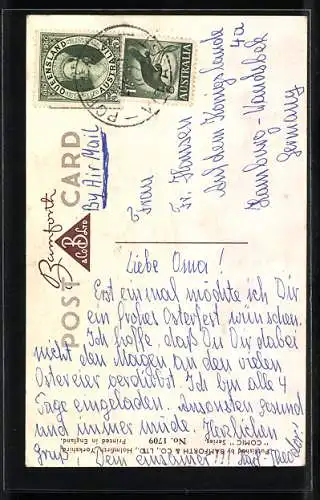 QUEENSLAND
AUSTRALIA
AUSTRALIA
Bamforth
& Co Ltd
POST CARD
By Air Mail
Frau
Fr. Hansen
Auf dem Königslande
4a
Hamburg-Wandsbek
Germany
Liebe Oma!
Erst einmal möchte ich Dir
ein frohes Osterfest wünschen.
Ich hoffe, daß Du Dir dabei
nicht den Magen an den vielen
Ostereier verdirbst. Ich bin alle 4
Tage eingeladen. Ansonsten gesund
und immer müde. Herzlichen
Gruß! Dein einsamer !!!
Published by BAMFORTH & CO., LTD., Holmfirth, Yorkshire
"COMIC" Series. No. 1709 Printed in England